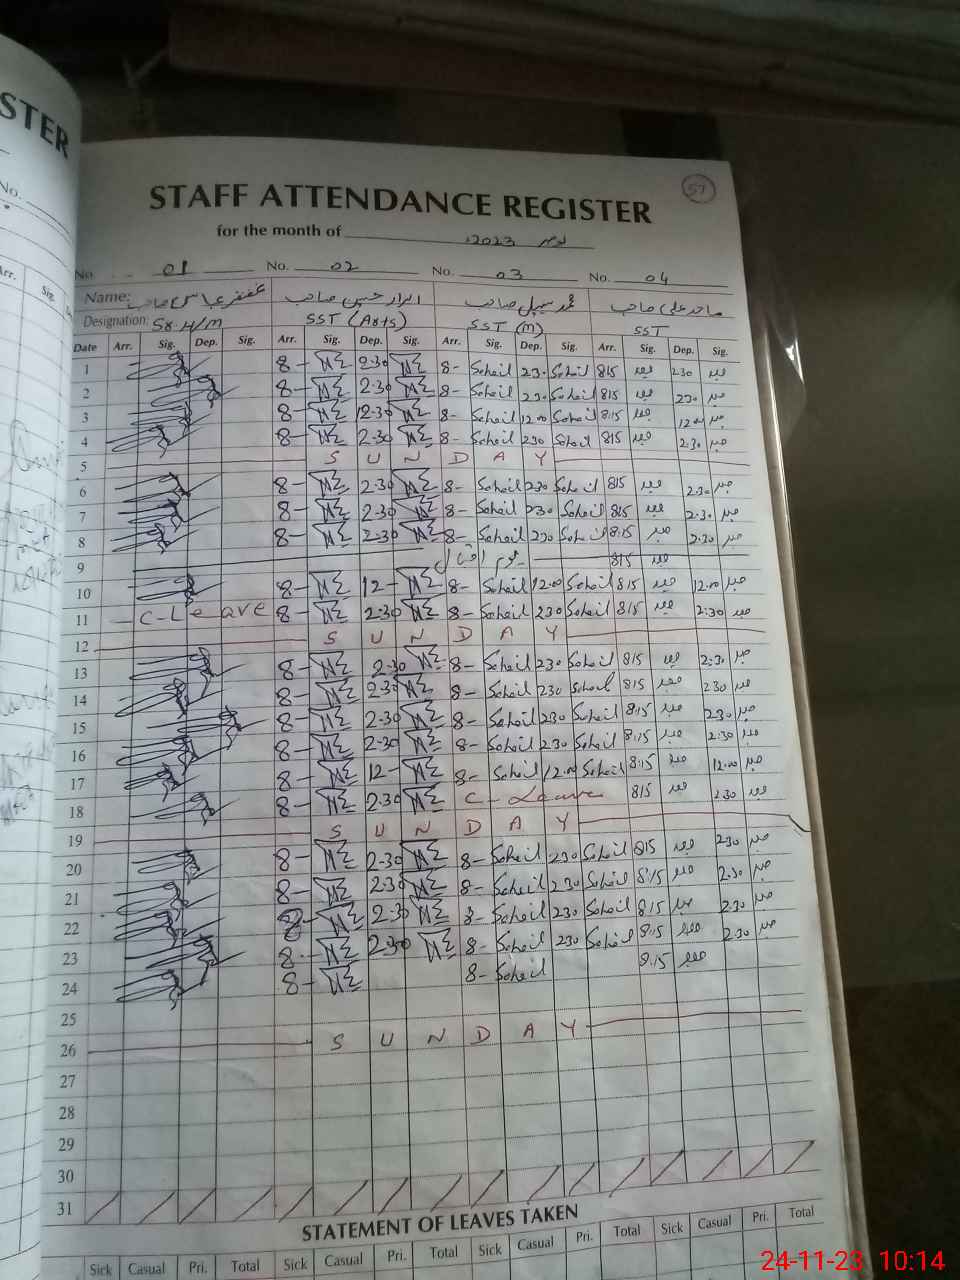 STER
No.
Arr.
Sig.
57
STAFF ATTENDANCE REGISTER
for the month of نومبر 2023ء
No. 01 No. 02 No. 03 No. 04
Name: غضنفر عباس صاحب ابرار حسین صاحب محمد سہیل صاحب ماجد علی صاحب
Designation: Sr. H/M SST (Arts) SST (M) SST
Date Arr. Sig. Dep. Sig. Arr. Sig. Dep. Sig. Arr. Sig. Dep. Sig. Arr. Sig. Dep. Sig.
1 8- 2.30 8- Soheil 230 Soheil 815 230
2 8- 2.30 8- Soheil 230 Soheil 815 230
3 8- 12.30 8- Soheil 12.00 Soheil 8.15 12.00
4 8- 2.30 8- Soheil 230 Soheil 815 2.30
5 SUNDAY
6 8- 2.30 8- Soheil 230 Soheil 815 2.30
7 8- 2.30 8- Soheil 230 Soheil 815 2.30
8 8- 2.30 8- Soheil 230 Soheil 8.15 2.30
9 یوم اقبال 815
10 8- 12- 8- Soheil 12.00 Soheil 815 12.00
11 C-Leave 8- 2.30 8- Soheil 230 Soheil 815 2.30
12 SUNDAY
13 8- 2.30 8- Soheil 230 Soheil 815 2.30
14 8- 2.30 8- Soheil 230 Soheil 815 230
15 8- 2.30 8- Soheil 230 Soheil 8.15 230
16 8- 2.30 8- Soheil 230 Soheil 8.15 2.30
17 8- 12- 8- Soheil 12.00 Soheil 8.15 12.00
18 8- 2.30 C-Leave 815 230
19 SUNDAY
20 8- 2.30 8- Soheil 230 Soheil 815 230
21 8- 2.30 8- Soheil 230 Soheil 8.15 2.30
22 8- 2.30 8- Soheil 230 Soheil 8.15 230
23 8- 2.30 8- Soheil 230 Soheil 8.15 2.30
24 8- 8- Soheil 8.15
25
26 SUNDAY
27
28
29
30
31
STATEMENT OF LEAVES TAKEN
Sick Casual Pri. Total Sick Casual Pri. Total Sick Casual Pri. Total Sick Casual Pri. Total
24-11-23 10:14